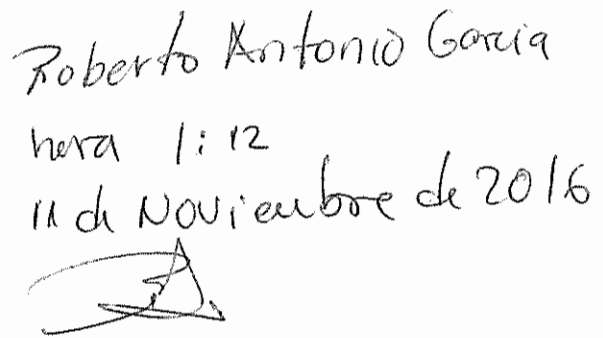 Roberto Antonio Garcia
hora 1:12
11 de Noviembre de 2016